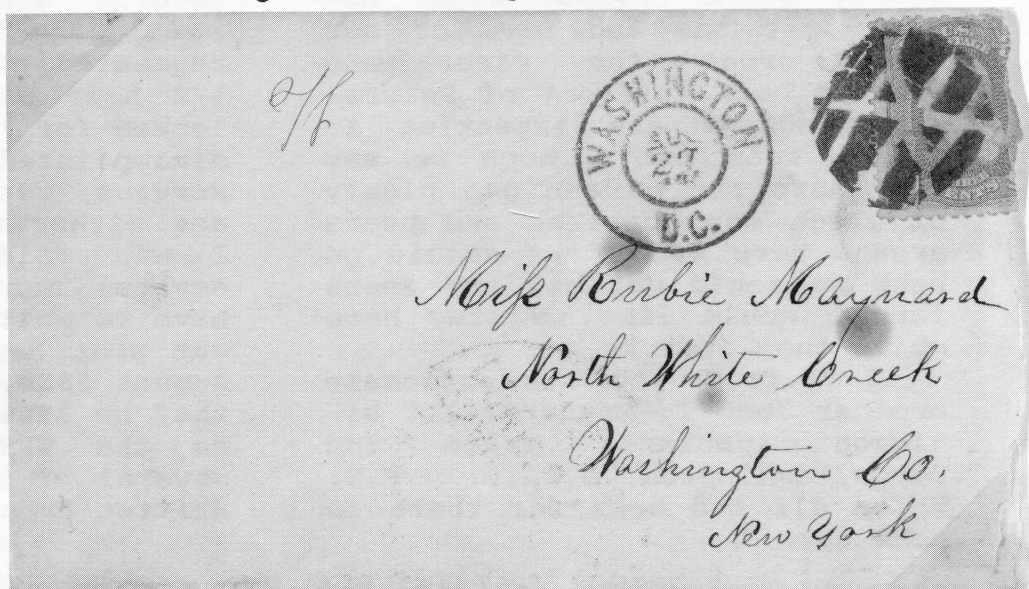 WASHINGTON
27
D.C.
Miss Rubie Maynard
North White Creek
Washington Co.
New York